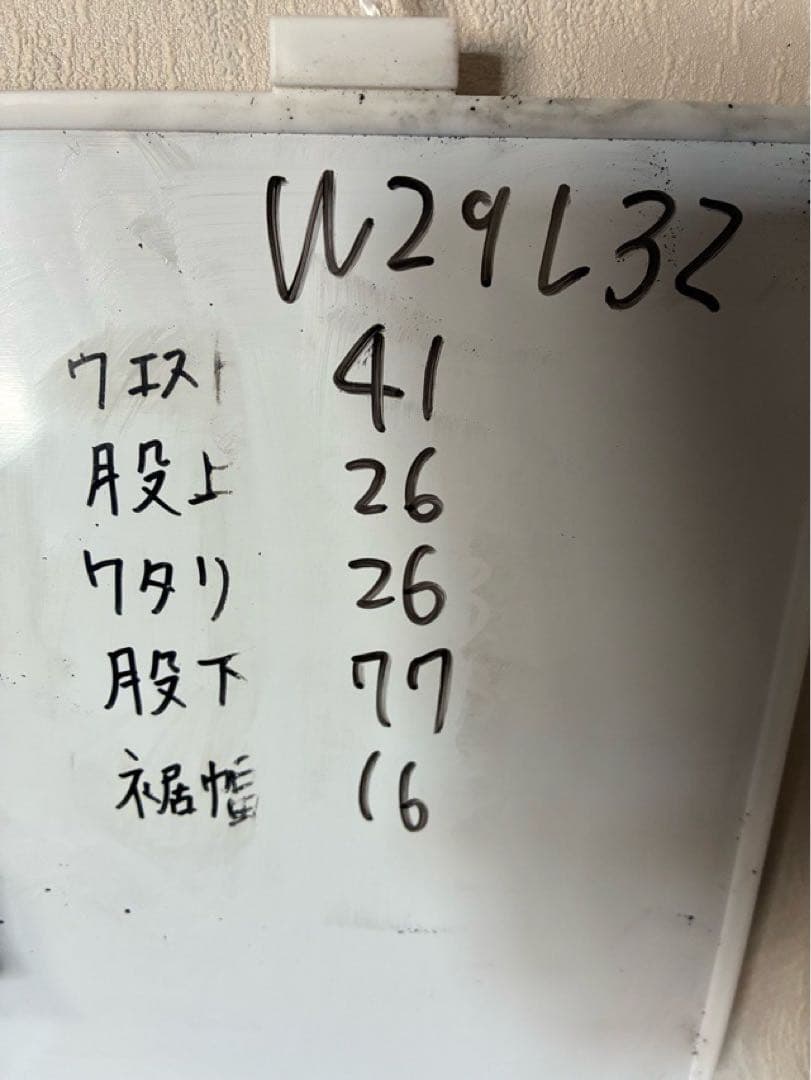 W29L32
ウエスト 41
股上 26
ワタリ 26
股下 77
裾幅 16